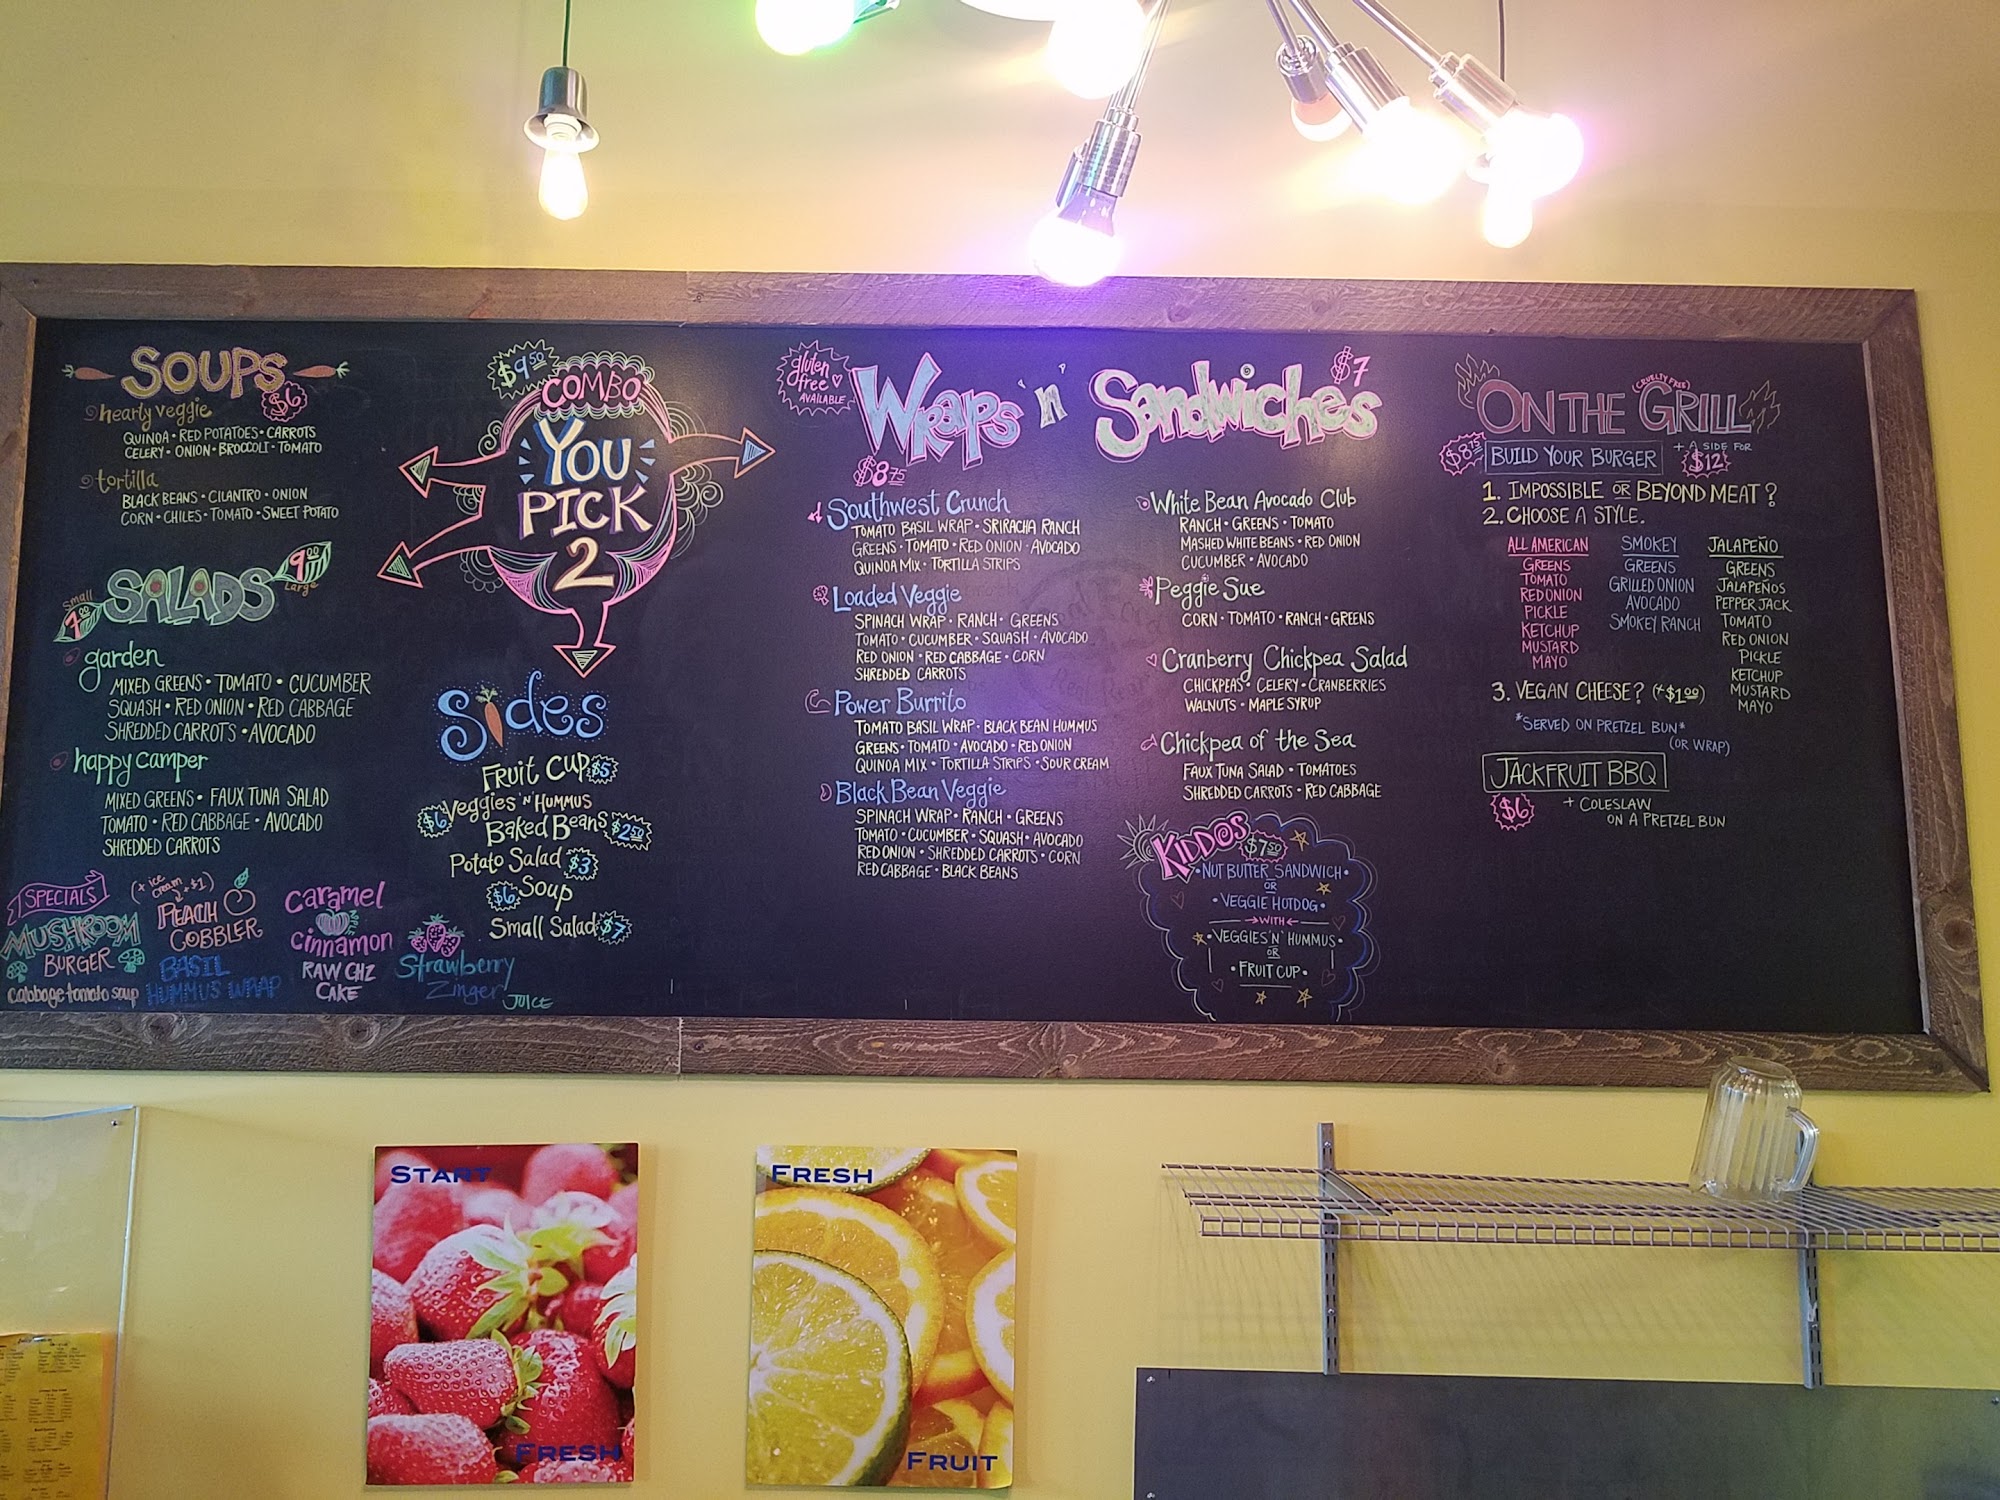 SOUPS
$6
hearty veggie
QUINOA • RED POTATOES • CARROTS
CELERY • ONION • BROCCOLI • TOMATO
tortilla
BLACK BEANS • CILANTRO • ONION
CORN • CHILES • TOMATO • SWEET POTATO
SALADS
Small 7.00
9.00 Large
garden
MIXED GREENS • TOMATO • CUCUMBER
SQUASH • RED ONION • RED CABBAGE
SHREDDED CARROTS • AVOCADO
happy camper
MIXED GREENS • FAUX TUNA SALAD
TOMATO • RED CABBAGE • AVOCADO
SHREDDED CARROTS
SPECIALS
MUSHROOM
BURGER
cabbage tomato soup
(+ ice cream +$1)
PEACH
COBBLER
BASIL
HUMMUS WRAP
Caramel
APPLE
Cinnamon
RAW CHZ
CAKE
Strawberry
Zinger JUICE
$9.50
COMBO
YOU
PICK
2
Sides
FRUIT CUP $5
$6 VEGGIES 'N' HUMMUS
BAKED BEANS $2.50
POTATO SALAD $3
$6 SOUP
SMALL SALAD $7
gluten free AVAILABLE
Wraps 'n' Sandwiches
$8.75
$7
Southwest Crunch
TOMATO BASIL WRAP • SRIRACHA RANCH
GREENS • TOMATO • RED ONION • AVOCADO
QUINOA MIX • TORTILLA STRIPS
Loaded Veggie
SPINACH WRAP • RANCH • GREENS
TOMATO • CUCUMBER • SQUASH • AVOCADO
RED ONION • RED CABBAGE • CORN
SHREDDED CARROTS
Power Burrito
TOMATO BASIL WRAP • BLACK BEAN HUMMUS
GREENS • TOMATO • AVOCADO • RED ONION
QUINOA MIX • TORTILLA STRIPS • SOUR CREAM
Black Bean Veggie
SPINACH WRAP • RANCH • GREENS
TOMATO • CUCUMBER • SQUASH • AVOCADO
RED ONION • SHREDDED CARROTS • CORN
RED CABBAGE • BLACK BEANS
White Bean Avocado Club
RANCH • GREENS • TOMATO
MASHED WHITE BEANS • RED ONION
CUCUMBER • AVOCADO
Peggie Sue
CORN • TOMATO • RANCH • GREENS
Cranberry Chickpea Salad
CHICKPEAS • CELERY • CRANBERRIES
WALNUTS • MAPLE SYRUP
Chickpea of the Sea
FAUX TUNA SALAD • TOMATOES
SHREDDED CARROTS • RED CABBAGE
KIDDOS
$7.50
• NUT BUTTER SANDWICH •
OR
• VEGGIE HOTDOG •
WITH
• VEGGIES 'N' HUMMUS •
OR
• FRUIT CUP •
(CRUELTY FREE)
ON THE GRILL
$8.75 BUILD YOUR BURGER
+ A SIDE FOR
$12
1. IMPOSSIBLE OR BEYOND MEAT?
2. CHOOSE A STYLE.
ALL AMERICAN
GREENS
TOMATO
RED ONION
PICKLE
KETCHUP
MUSTARD
MAYO
SMOKEY
GREENS
GRILLED ONION
AVOCADO
SMOKEY RANCH
JALAPEÑO
GREENS
JALAPEÑOS
PEPPER JACK
TOMATO
RED ONION
PICKLE
KETCHUP
MUSTARD
MAYO
3. VEGAN CHEESE? (+$1.00)
*SERVED ON PRETZEL BUN*
(OR WRAP)
JACKFRUIT BBQ
$6
+ COLESLAW
ON A PRETZEL BUN
START
FRESH
FRESH
FRUIT